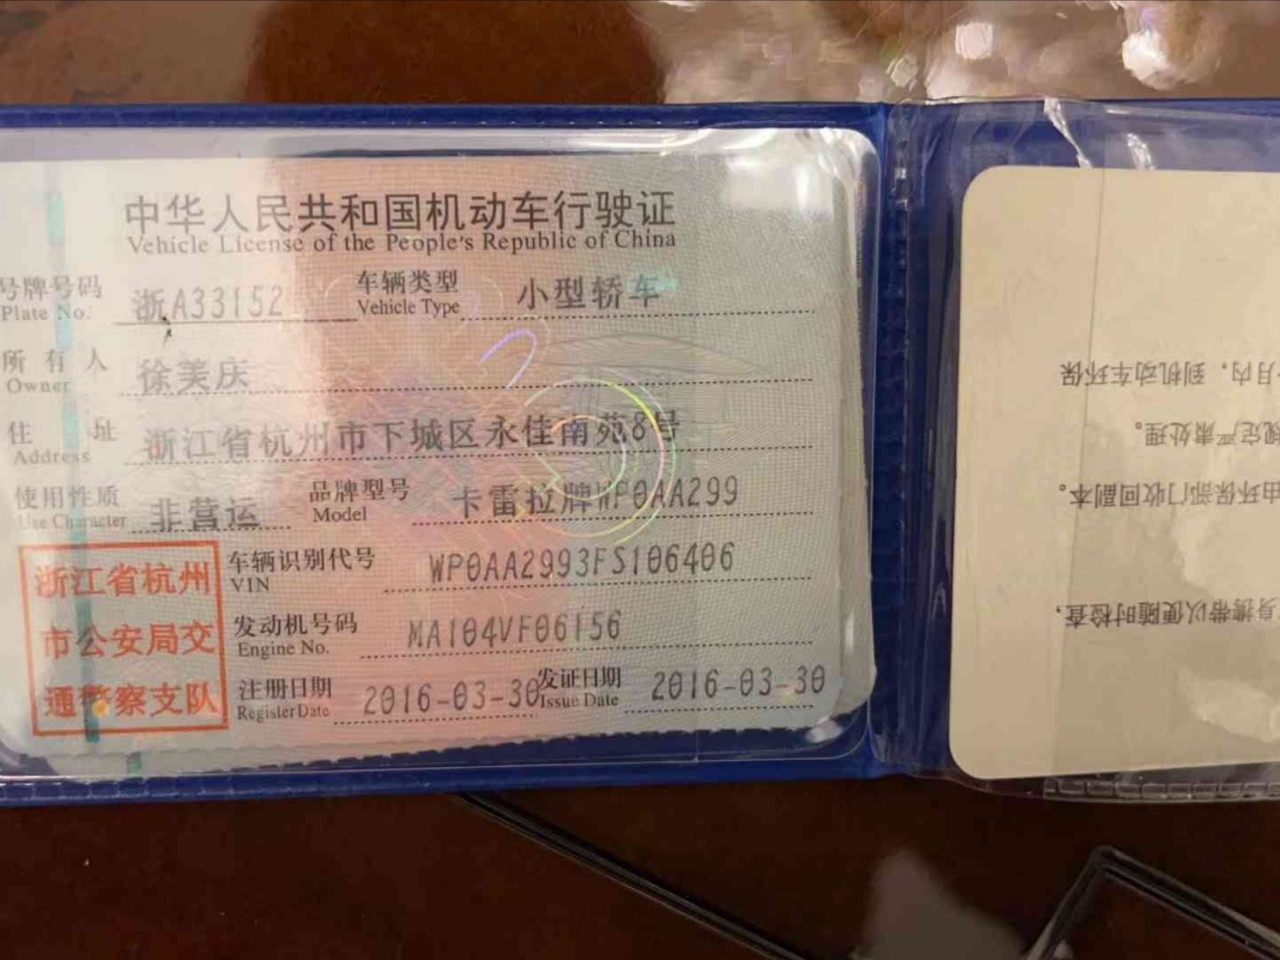 中华人民共和国机动车行驶证
Vehicle License of the People's Republic of China
号牌号码 浙A33152 车辆类型 小型轿车
Plate No. Vehicle Type
所有人 徐美庆
Owner
住址 浙江省杭州市下城区永佳南苑8号
Address
使用性质 非营运 品牌型号 卡雷拉牌WP0AA299
Use Character Model
车辆识别代号 WP0AA2993FS106406
VIN
发动机号码 MA104VF06156
Engine No.
注册日期 2016-03-30 发证日期 2016-03-30
Register Date Issue Date
浙江省杭州
市公安局交
通警察支队
身携带以便随时检查，
由环保部门收回副本。
规定严肃处理。
月内，到机动车环保